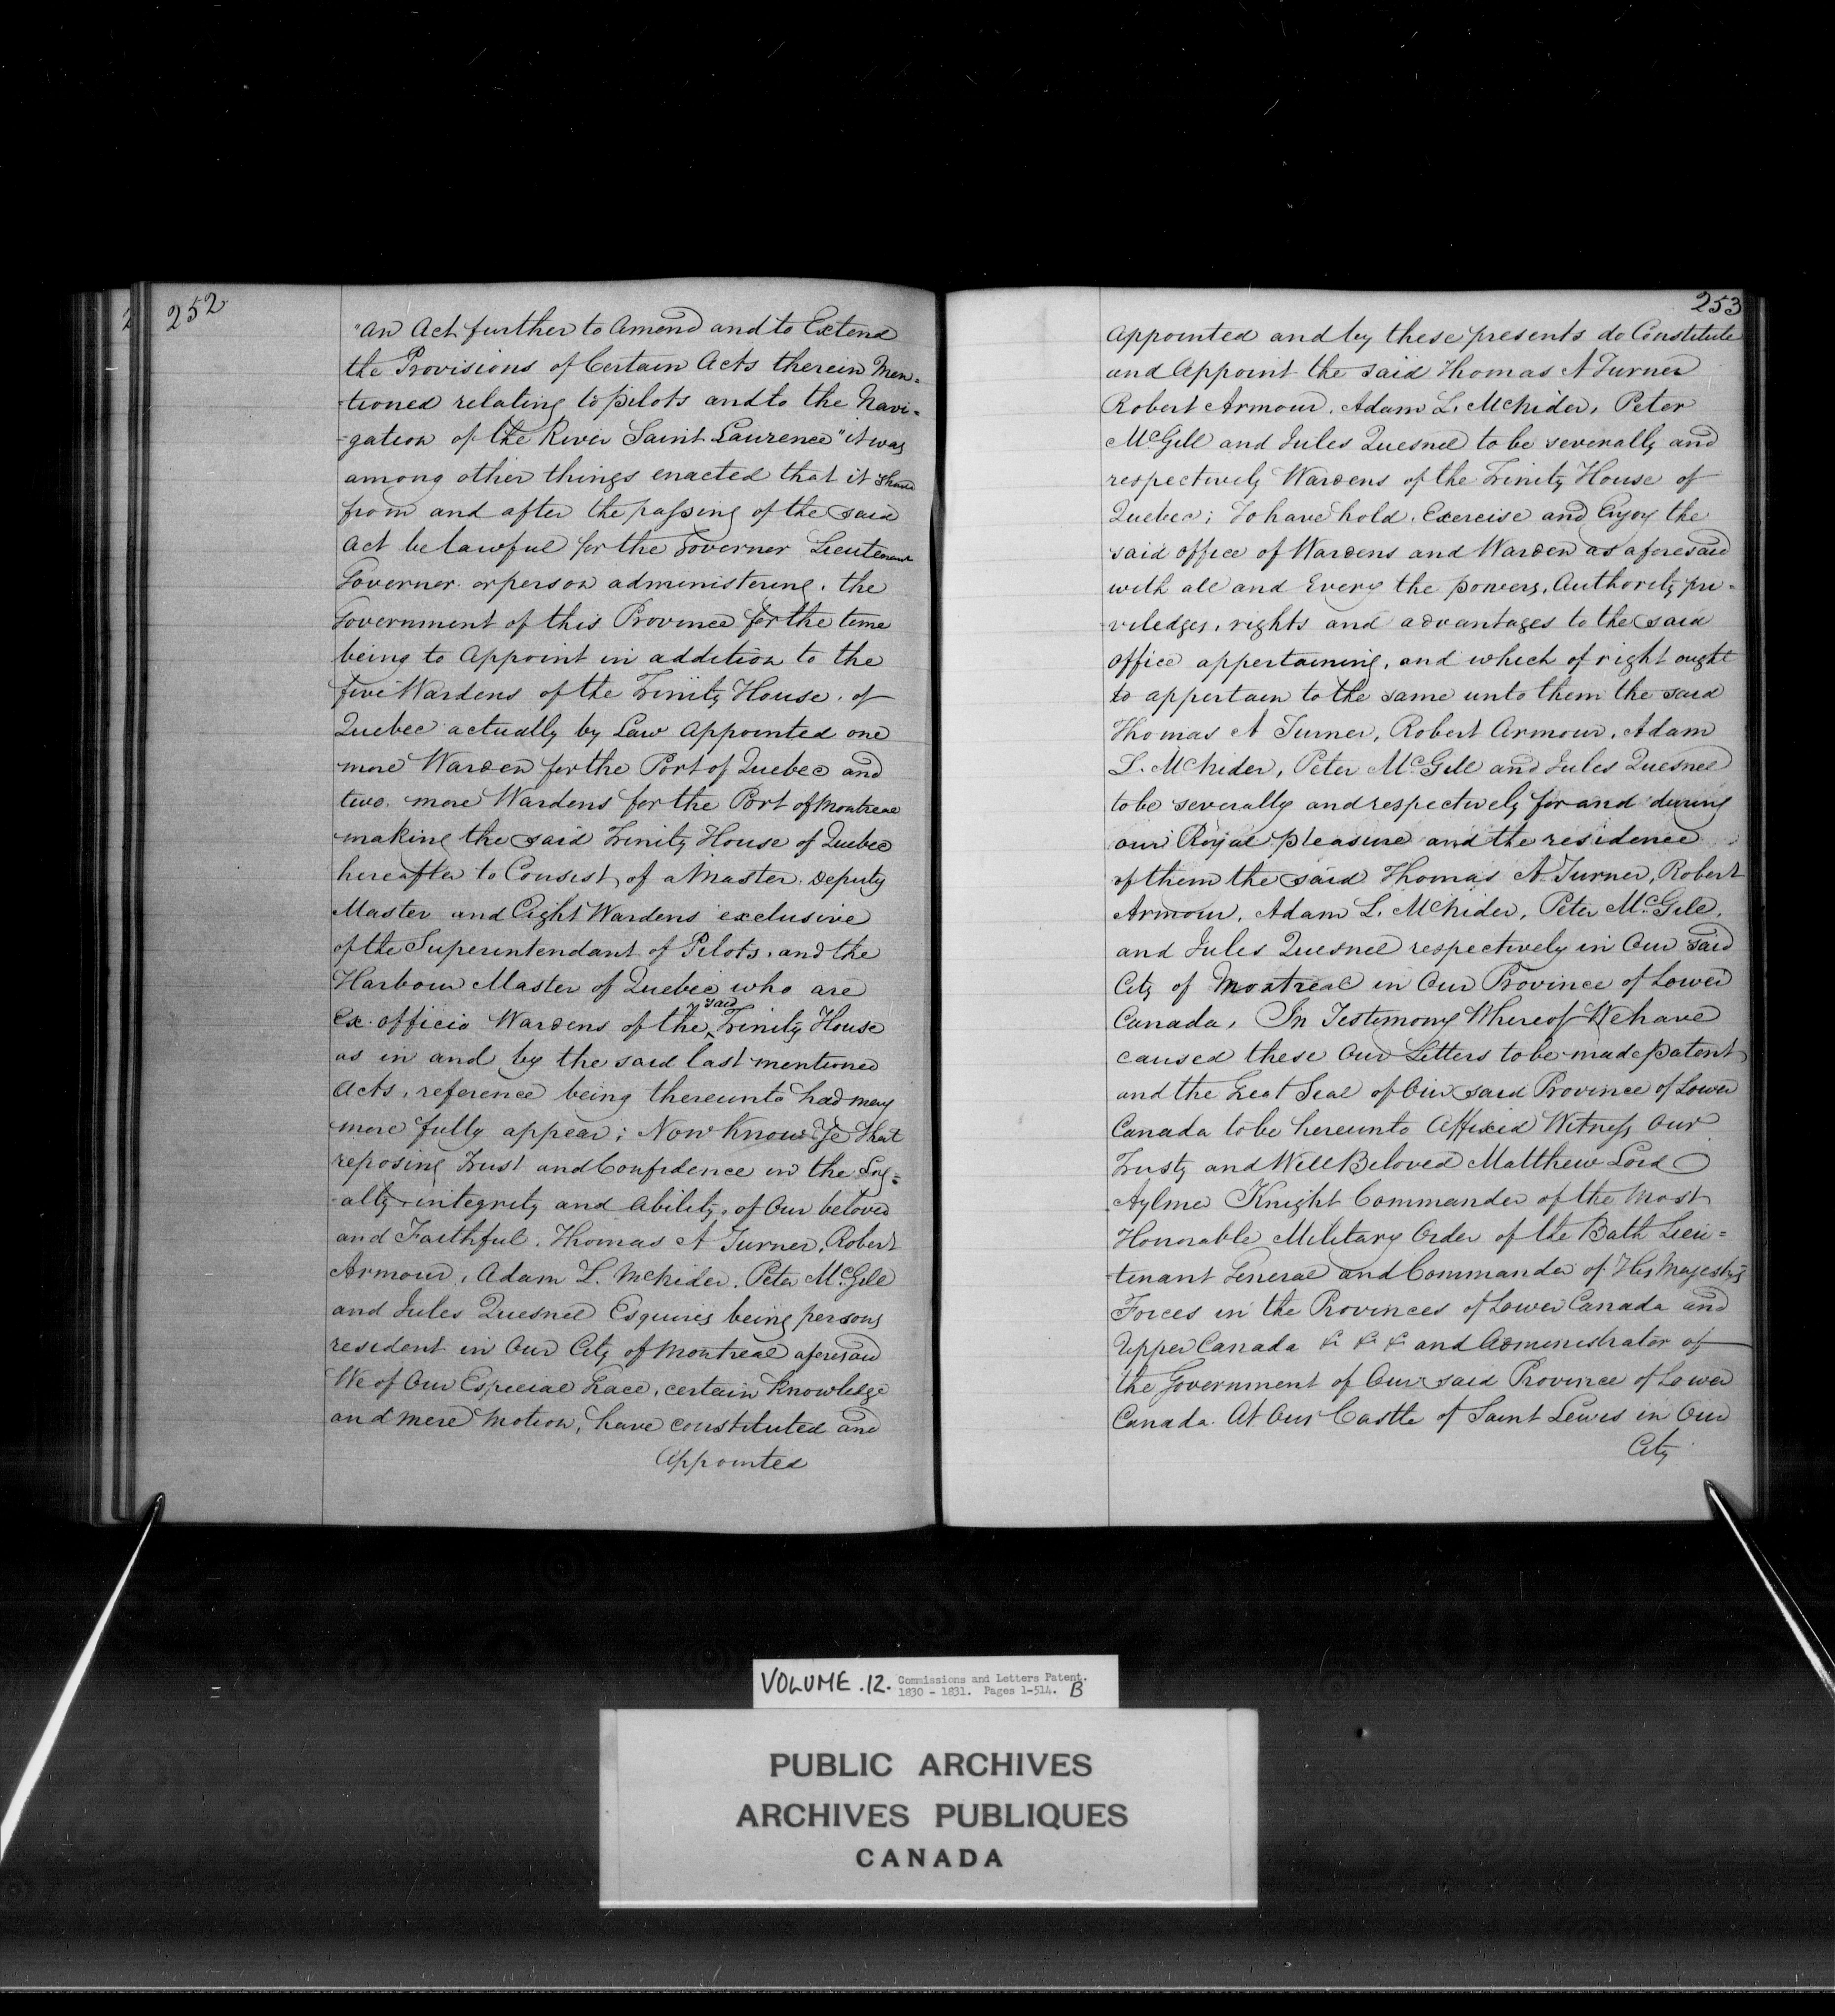 252
"An Act further to Amend and to Extend
the Provisions of Certain Acts therein Men=
-tioned relating to pilots and to the Navi=
-gation of the River Saint Laurence" it was
among other things enacted that it should
from and after the passing of the said
Act be lawful for the Governer Lieutenant
Governer or person administering, the
Government of this Province for the time
being to Appoint in addition to the
five Wardens of the Trinity House of
Quebec actually by Law Appointed one
more Warden for the Port of Quebec and
two more Wardens for the Port of Montreal
making the said Trinity House of Quebec
hereafter to Consist of a Master, Deputy
Master and Eight Wardens exclusive
of the Superintendant of Pilots, and the
Harbour Master of Quebec who are
Ex officio Wardens of the said Trinity House
as in and by the said last mentioned
Acts, reference being thereunto had may
more fully appear; Now Know Ye that
reposing Trust and Confidence in the Loy=
-alty integrity and Ability, of Our beloved
and Faithful. Thomas A Turner, Robert
Armour, Adam L. McNider. Peter McGill
and Jules Quesnel Esquires being persons
resident in Our City of Montreal aforesaid
We of Our Especial Grace, certain knowledge
and mere motion, have constituted and
Appointed
253
Appointed and by these presents do Constitute
and Appoint the said Thomas A Turner
Robert Armour, Adam L. McNider, Peter
McGill and Jules Quesnel to be severally and
respectively Wardens of the Trinity House of
Quebec; To have hold, Exercise and Enjoy the
said office of Wardens and Warden as aforesaid
with all and Every the powers, Authority pri=
-viledges, rights and advantages to the said
Office appertaining, and which of right ought
to appertain to the same unto them the said
Thomas A Turner, Robert Armour, Adam
L. McNider, Peter McGill and Jules Quesnel
to be severally and respectively for and during
our Royal pleasure and the residence
of them the said Thomas A Turner, Robert
Armour, Adam L. McNider, Peter McGill,
and Jules Quesnel respectively in Our said
City of Montreal in Our Province of Lower
Canada, In Testimony Whereof We have
caused these Our Letters to be made patent
and the Great Seal of Our said Province of Lower
Canada to be hereunto Affixed Witness Our
Trusty and Well Beloved Matthew Lord
Aylmer Knight Commander of the Most
Honorable Military Order of the Bath Lieu=
-tenant General and Commander of His Majesty's
Forces in the Provinces of Lower Canada and
Upper Canada & & & and Administrator of
the Government of Our said Province of Lower
Canada. At Our Castle of Saint Lewis in Our
City
VOLUME .12. Commissions and Letters Patent.
1830 - 1831. Pages 1-514. B
PUBLIC ARCHIVES
ARCHIVES PUBLIQUES
CANADA